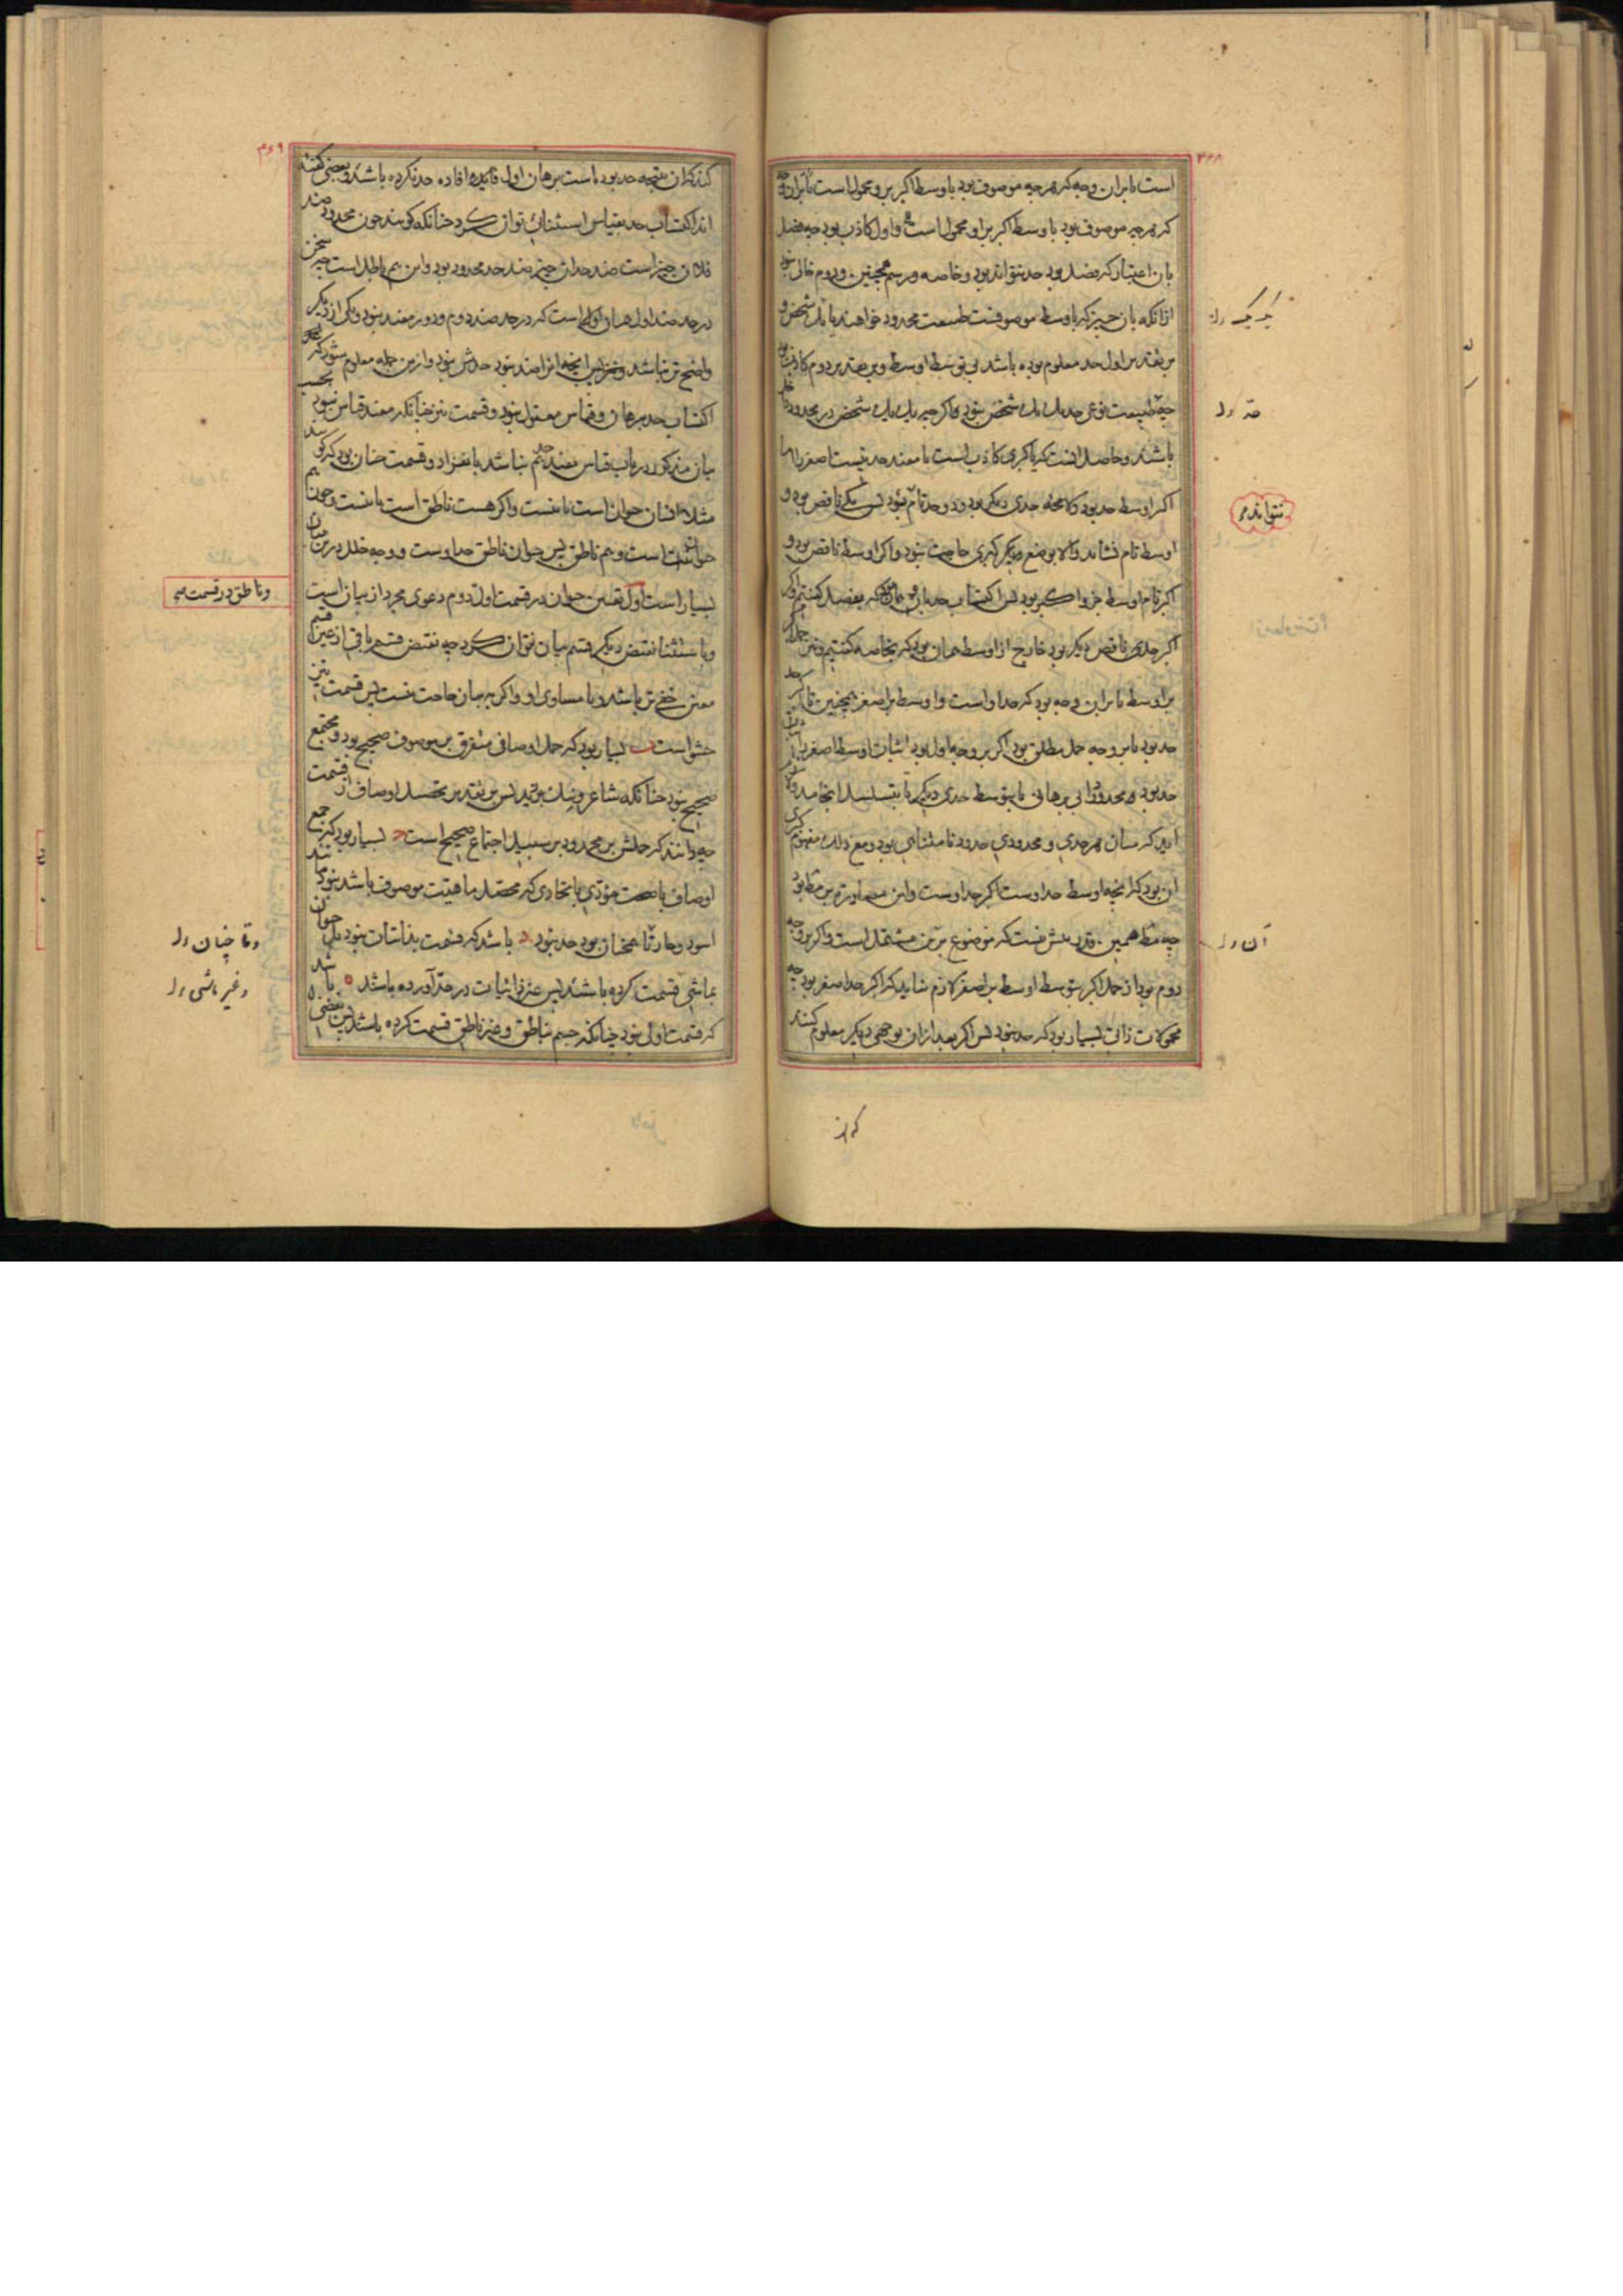 ۴۶۸
است یا بران وجه که هرچه موصوف بود باوسط اکبر برو محمول است یا بران وجه
که هرچه موصوف بود باوسط اکبر براو محمول است و اول کاذب بود چه فصل
بان اعتبار که فصل بود حد نتواند بود و خاصه و رسم همچنین و دوم خالی نبود
ازانکه بان چیز که باوسط موصوفست طبیعت محدود خواهند یا یک شخص و
بر تقدیر اول حد معلوم بوده باشد بی توسط اوسط و بر تقدیر دوم کاذب بود
چه طبیعت نوعی حد یک یک شخص نبود و اگر چه یک یک شخص در محدود داخل
باشد و حاصل آنست که یا کبری کاذب است یا مفید حد نیست اصغر را
اگر اوسط حد بود و لا محاله حدی دیگر بود و دو حد تام نبود پس یکی ناقص بود و
اوسط تام نشاند والا بوضع دیگر کبری حاجت نبود و اگر اوسط ناقص بود و
اکبر تام اوسط جزو اکبر بود پس اکتساب حد بان همان بود که بفصل گفتیم و اگر
اکبر حدی ناقص دیگر بود خارج از اوسط همان بود که بخاصه گفتیم و نیز حمل اکبر
بر اوسط یا بر این وجه بود که حد او است و اوسط بر اصغر همچنین تا اکبر حد
حد بود یا بر وجه حمل مطلق بود اگر بر وجه اول بود اثبات اوسط اصغر را
حد بود و محدود را بی برهانی یا بتوسط حدی دیگر تا بتسلسل انجامد
آید که میان هر حدی و محدودی حدود نامتناهی بود و مع ذلک مفهوم کبری
آن بود که انچه اوسط حد اوست اکبر حد اوست و این مصادره بر مط بود
چه مط همین قدر بیش نیست که موضوع برین مشتمل است و اگر بر وجه
دوم بود از حمل اکبر بتوسط اوسط بر اصغر لازم نیاید که اکبر حد اصغر بود چه
محمولات ذاتی بسیار بود که حد نبود پس اگر بعد ازان بوجهی دیگر معلوم کنند
نتواند
آن ل
که از
۴۶۹
کنند که آن نتیجه حد بوده است برهان اول فایده افاده حد نکرده باشد و بعضی گفته
اند اکتساب حد بقیاس استثنائی توان کرد چنانکه گویند چون محدود ضد
فلان چیز است ضد حد آن چیز ضد حد محدود بود و این هم باطل است چه سخن
در حد ضد اول همان اولی است که در حد ضد دوم و دور مفید نبود و یکی از دیگر
واضح تر نباشد و نیز بس انچه انرا ضد نبود حدش نبود و ازین جمله معلوم شود که
اکتساب حد ببرهان و قیاس معقول نبود و قسمت نیز چنانکه مفید قیاس نبود بحسب
بیان مذکور در باب قیاس مفید حد هم نباشد بانفراد و قسمت چنان بود که گویند
مثلا انسان حیوان است یا نیست و اگر هست ناطق است یا نیست و چون هم
حیوان است و هم ناطق پس حیوان ناطق حد اوست و وجه خلل درین بیان
بسیار است اول تعیین حیوان در قسمت اول و دوم دعوی مجرد از بیان است
و باستثنا نقیض دیگر قسم بیان نتوان کرد چه نقیض قسم باقی از عین قسم
معین خفی تر باشد و یا مساوی او و اگر به بیان حاجت نیست پس قسمت نیز
حشو است ب بسیار بود که حمل اوصاف متفرق بر موصوف صحیح بود و مجتمع
صحیح نبود چنانکه شاعر و نیک بر زید پس بر تقدیر تحصیل اوصاف از قسمت
چه دانند که حملش بر محدود بر سبیل اجتماع صحیح است ج بسیار بود که جمع
اوصاف با صحت مؤدی باتحادی که محصل ماهیت موصوف باشد نبود
اسود و حار تا همچنان بود حد نبود د باشد که قسمت بذاتیات نبود بل حیوان
بماشی قسمت کرده باشند پس غیر ذاتیات در حد آورده باشد ه باشد
که قسمت اولی نبود چنانکه جسم بناطق و غیر ناطق قسمت کرده باشند پس بعضی
وناطق در قسمت
وتا چنان ل
وغیر ماشی ل